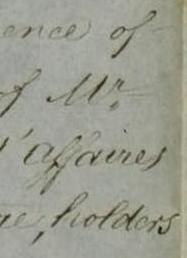 ence of
of Mr.
d'affaires
ge, holders